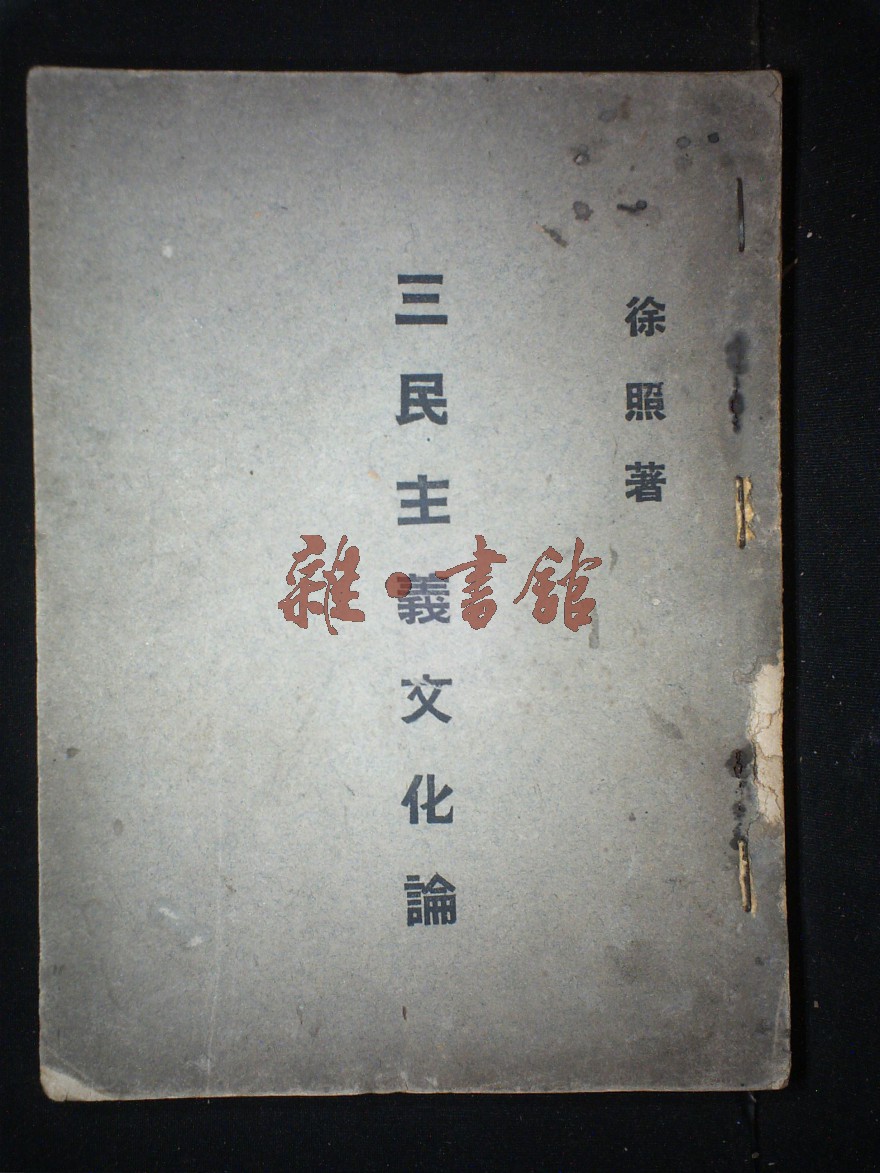 徐照著
三民主義文化論
雜·書館